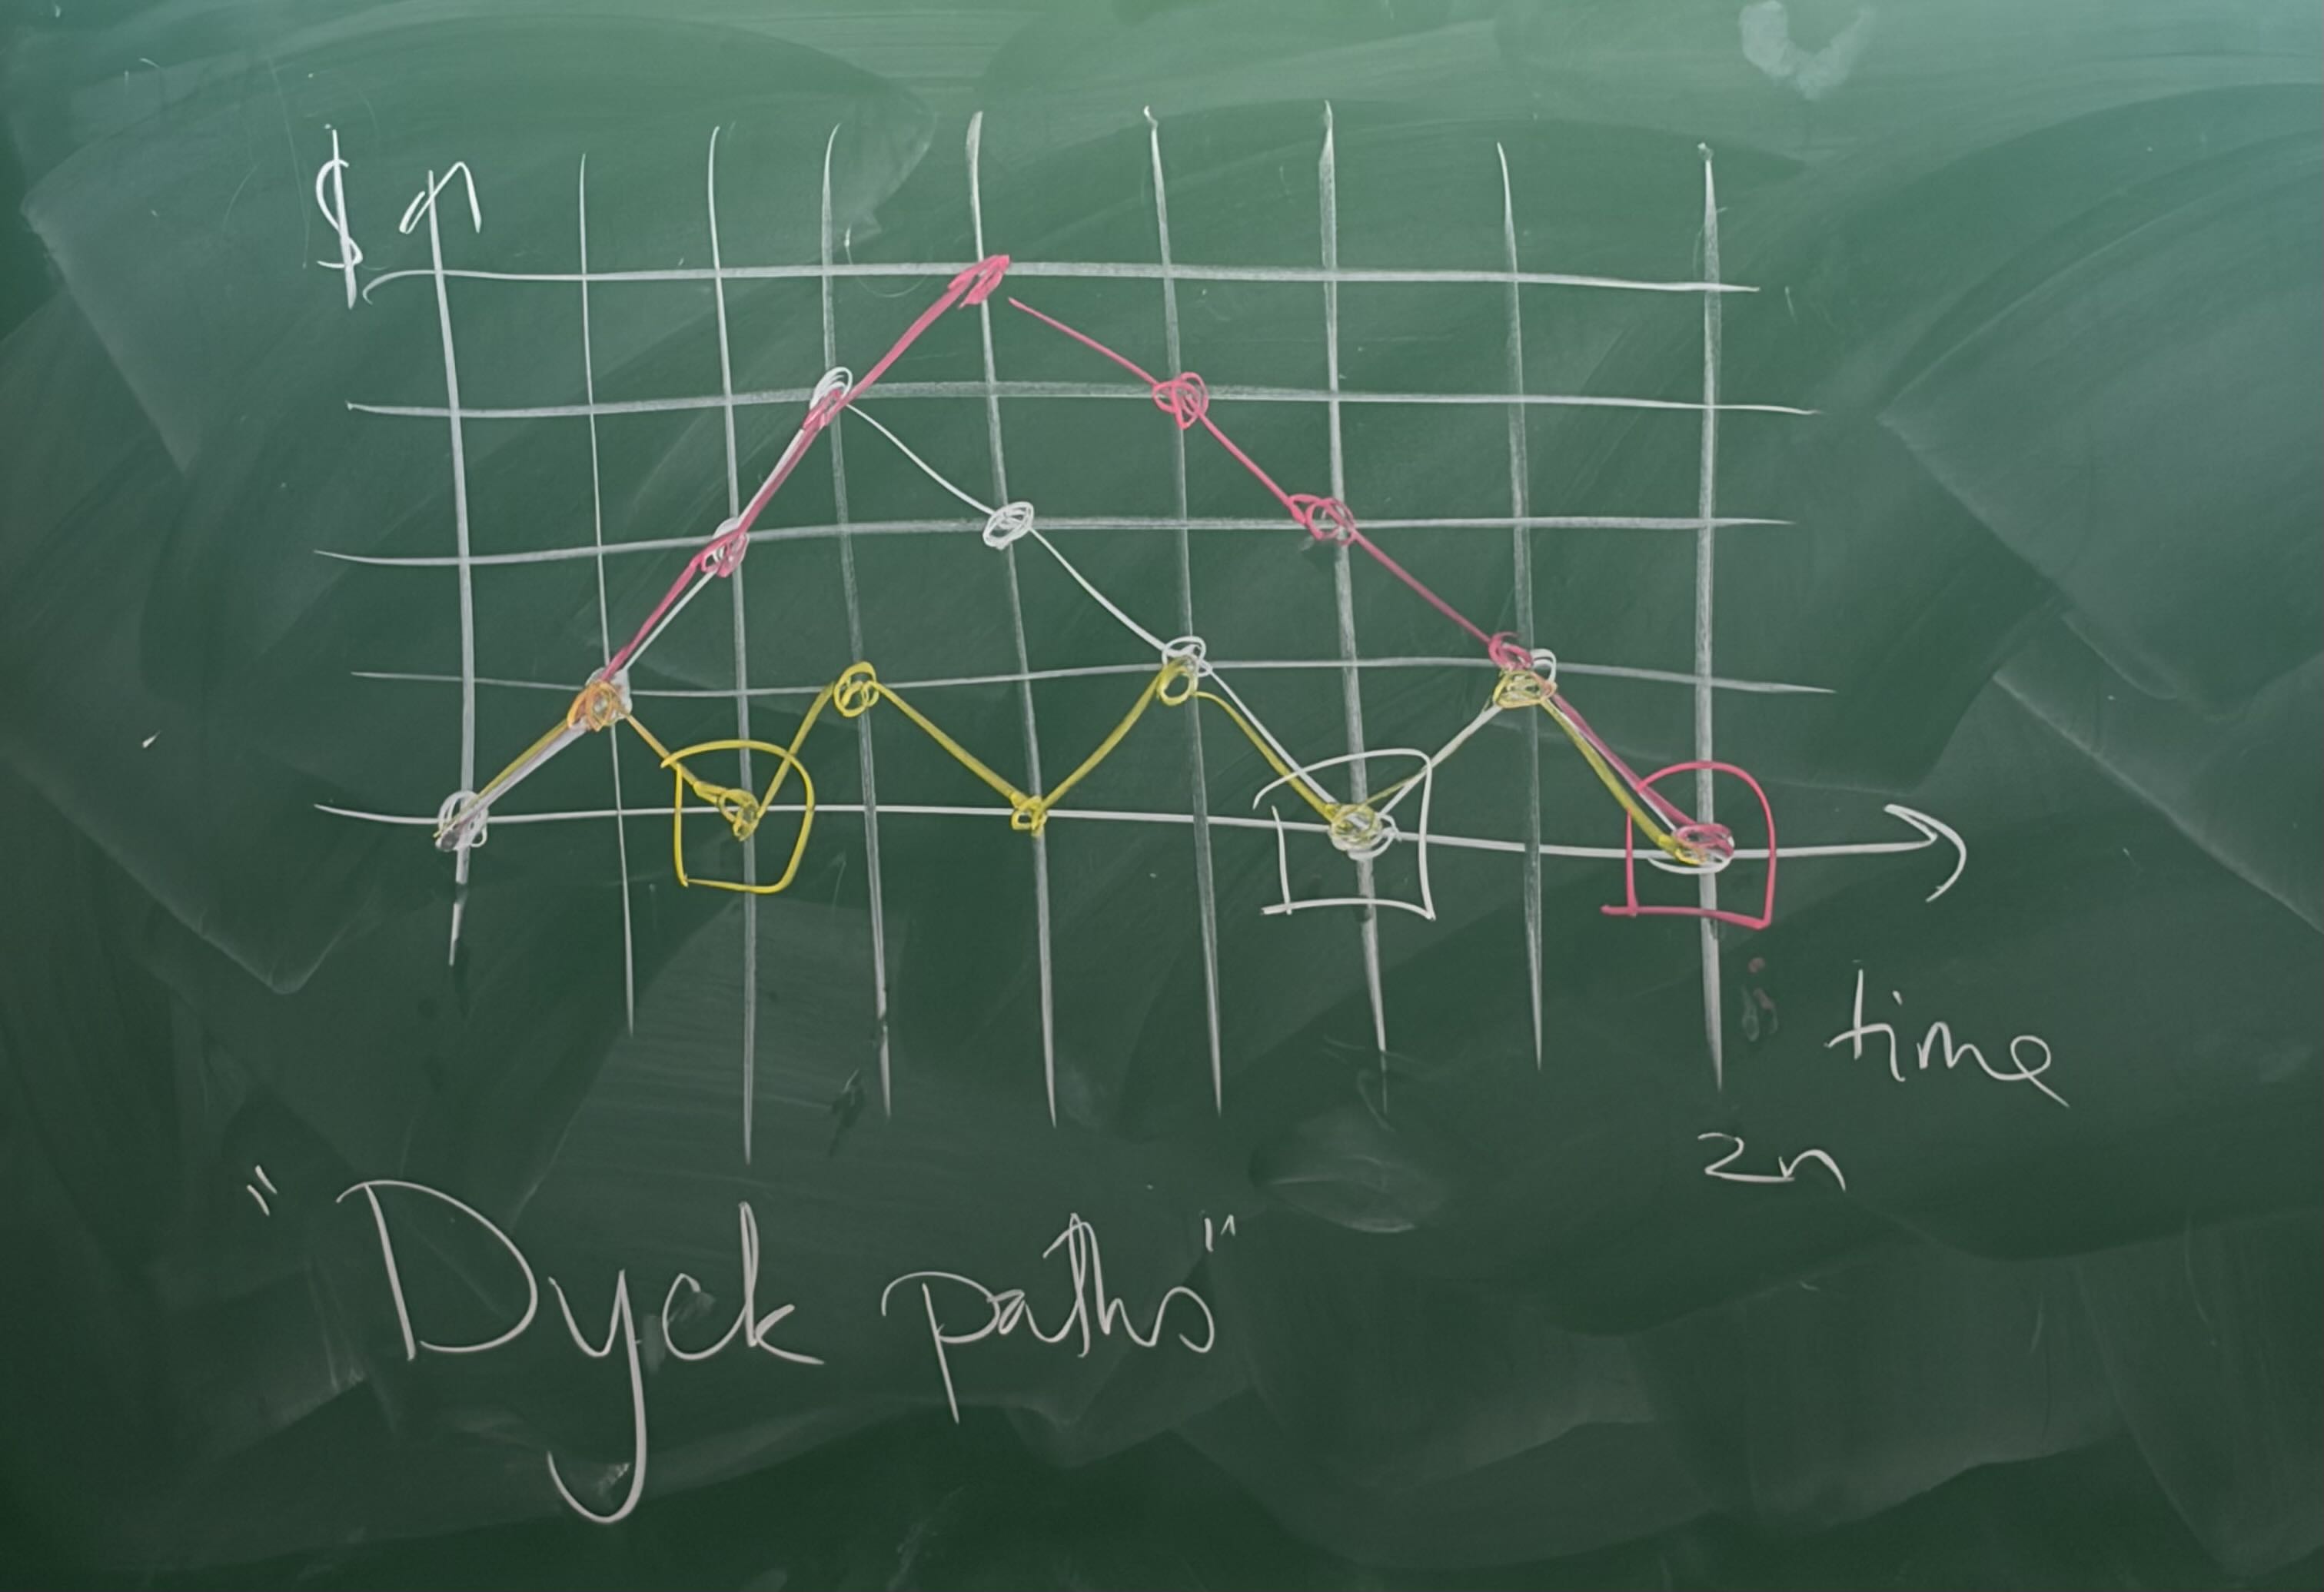 $
time
2n
"Dyck paths"